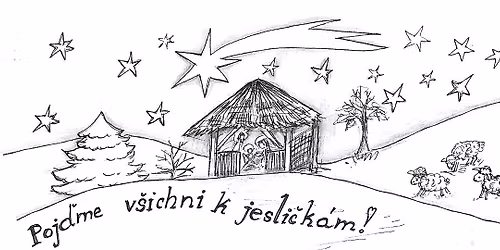 Pojďme všichni k jesličkám!